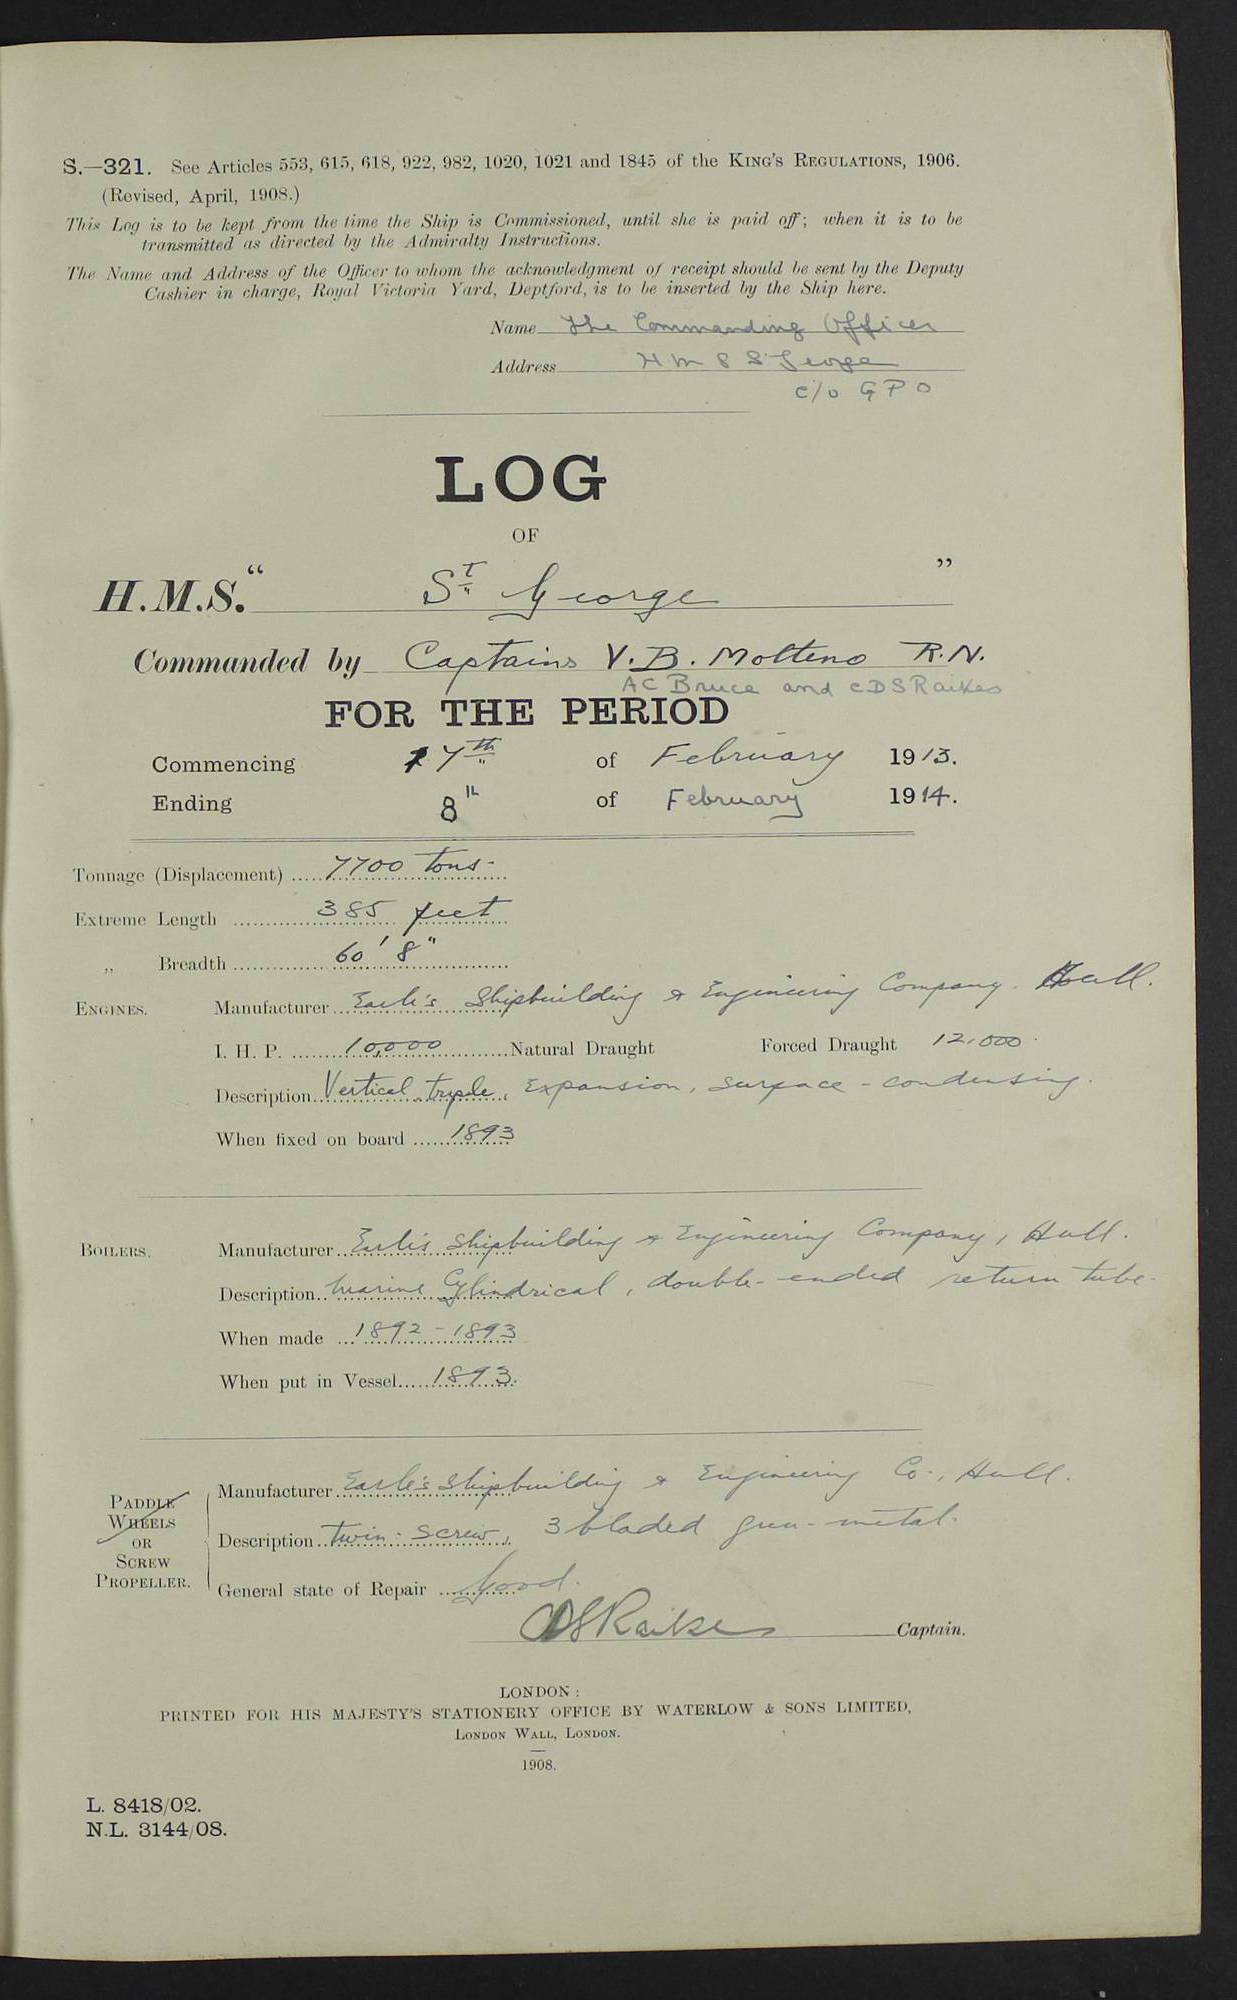 S.—321. See Articles 553, 615, 618, 922, 982, 1020, 1021 and 1845 of the KING'S REGULATIONS, 1906.
(Revised, April, 1908.)
This Log is to be kept from the time the Ship is Commissioned, until she is paid off; when it is to be
transmitted as directed by the Admiralty Instructions.
The Name and Address of the Officer to whom the acknowledgment of receipt should be sent by the Deputy
Cashier in charge, Royal Victoria Yard, Deptford, is to be inserted by the Ship here.
Name The Commanding Officer
Address H M S St George
c/o G P O
LOG
OF
H.M.S. "St George"
Commanded by Captains V. B. Molteno R.N.
A C Bruce and C D S Raikes
FOR THE PERIOD
Commencing 7th of February 1913.
Ending 8th of February 1914.
Tonnage (Displacement) 7700 tons.
Extreme Length 385 feet
„ Breadth 60' 8"
ENGINES. Manufacturer Earle's Shipbuilding & Engineering Company. Hull.
I. H. P. 10,000 Natural Draught Forced Draught 12,000.
Description Vertical, triple, Expansion, surface-condensing.
When fixed on board 1893
BOILERS. Manufacturer Earle's Shipbuilding & Engineering Company, Hull.
Description Marine Cylindrical, double-ended return tube.
When made 1892-1893
When put in Vessel 1893.
PADDLE WHEELS OR SCREW PROPELLER.
Manufacturer Earle's Shipbuilding & Engineering Co., Hull.
Description twin-screw, 3 bladed gun-metal.
General state of Repair Good.
CDSRaikes Captain.
LONDON:
PRINTED FOR HIS MAJESTY'S STATIONERY OFFICE BY WATERLOW & SONS LIMITED,
LONDON WALL, LONDON.
1908.
L. 8418/02.
N.L. 3144/08.